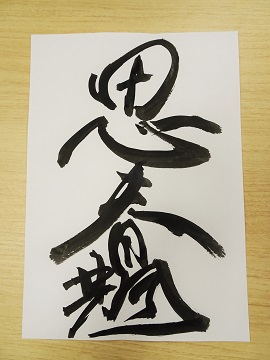 思春期